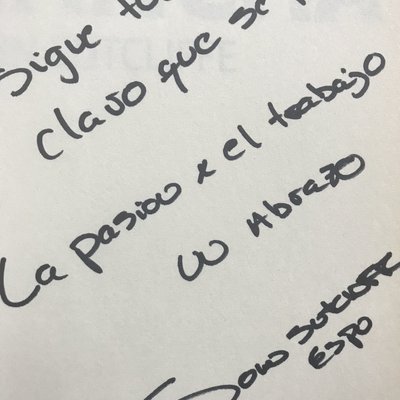 Sigue
Clavo que se
La pasion x el trabajo
Un Abrazo
Espo